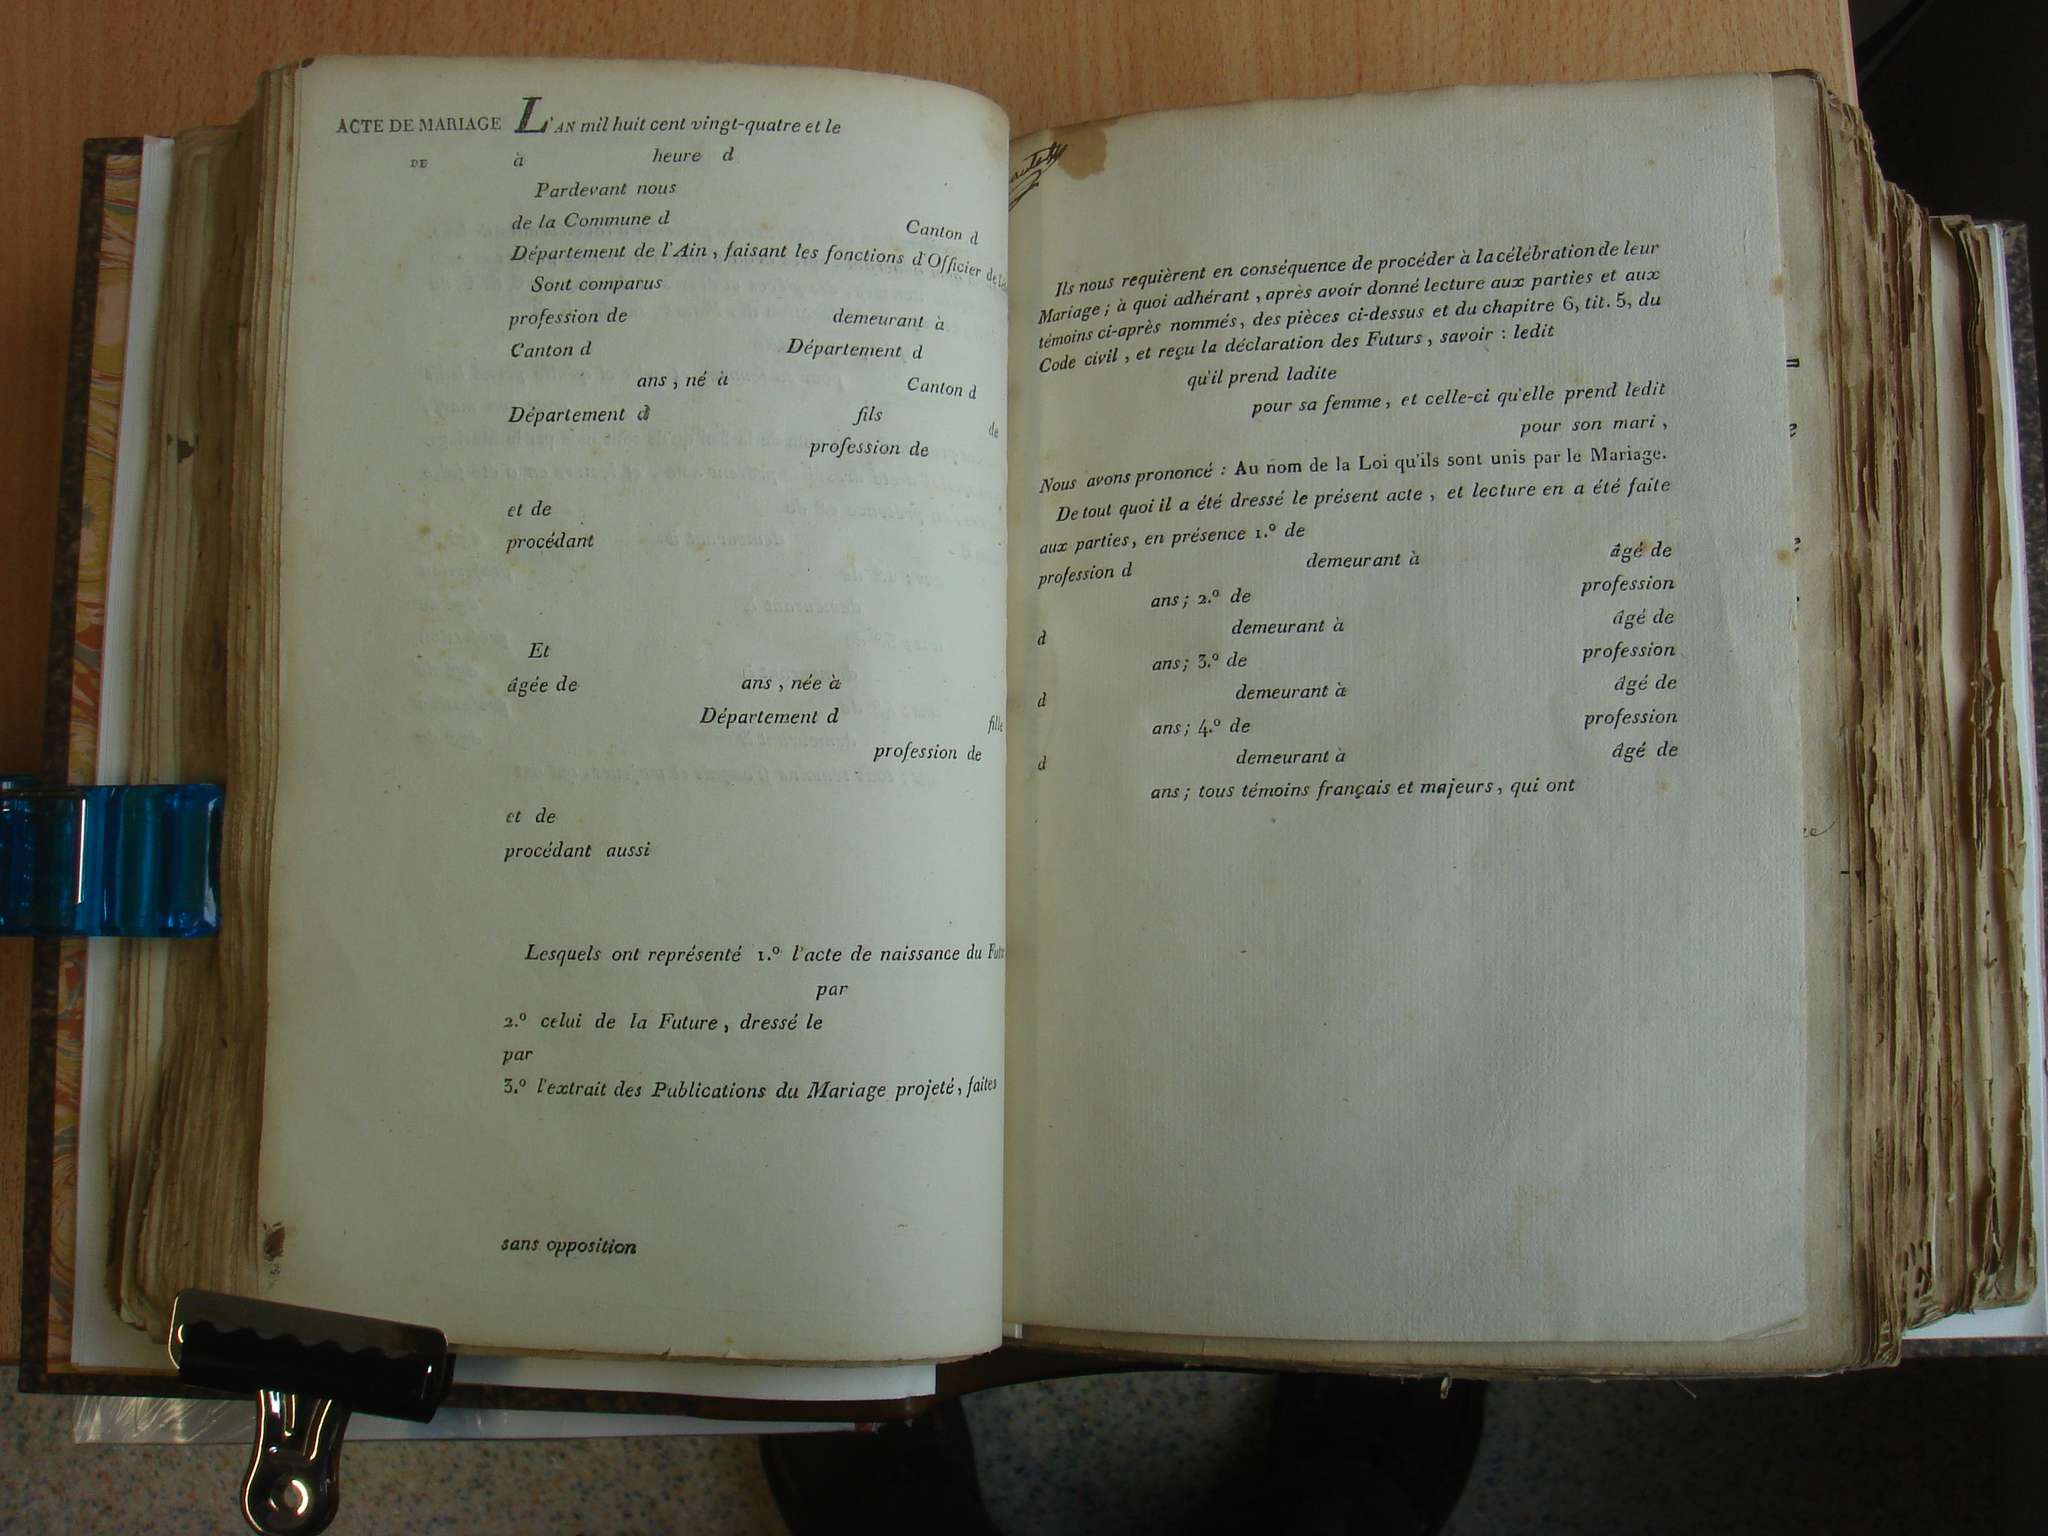 ACTE DE MARIAGE
DE
L'AN mil huit cent vingt-quatre et le
à heure d
Pardevant nous
de la Commune d Canton d
Département de l'Ain, faisant les fonctions d'Officier de
Sont comparus
profession de demeurant à
Canton d Département d
ans, né à Canton d
Département d fils de
profession de
et de
procédant
Et
âgée de ans, née à
Département d fille
profession de
et de
procédant aussi
Lesquels ont représenté 1.º l'acte de naissance du
par
2.º celui de la Future, dressé le
par
3.º l'extrait des Publications du Mariage projeté, faites
sans opposition
Ils nous requièrent en conséquence de procéder à la célébration de leur
Mariage; à quoi adhérant, après avoir donné lecture aux parties et aux
témoins ci-après nommés, des pièces ci-dessus et du chapitre 6, tit. 5, du
Code civil, et reçu la déclaration des Futurs, savoir: ledit
qu'il prend ladite
pour sa femme, et celle-ci qu'elle prend ledit
pour son mari,
Nous avons prononcé: Au nom de la Loi qu'ils sont unis par le Mariage.
De tout quoi il a été dressé le présent acte, et lecture en a été faite
aux parties, en présence 1.º de
profession d demeurant à âgé de
ans; 2.º de profession
d demeurant à âgé de
ans; 3.º de profession
d demeurant à âgé de
ans; 4.º de profession
d demeurant à âgé de
ans; tous témoins français et majeurs, qui ont